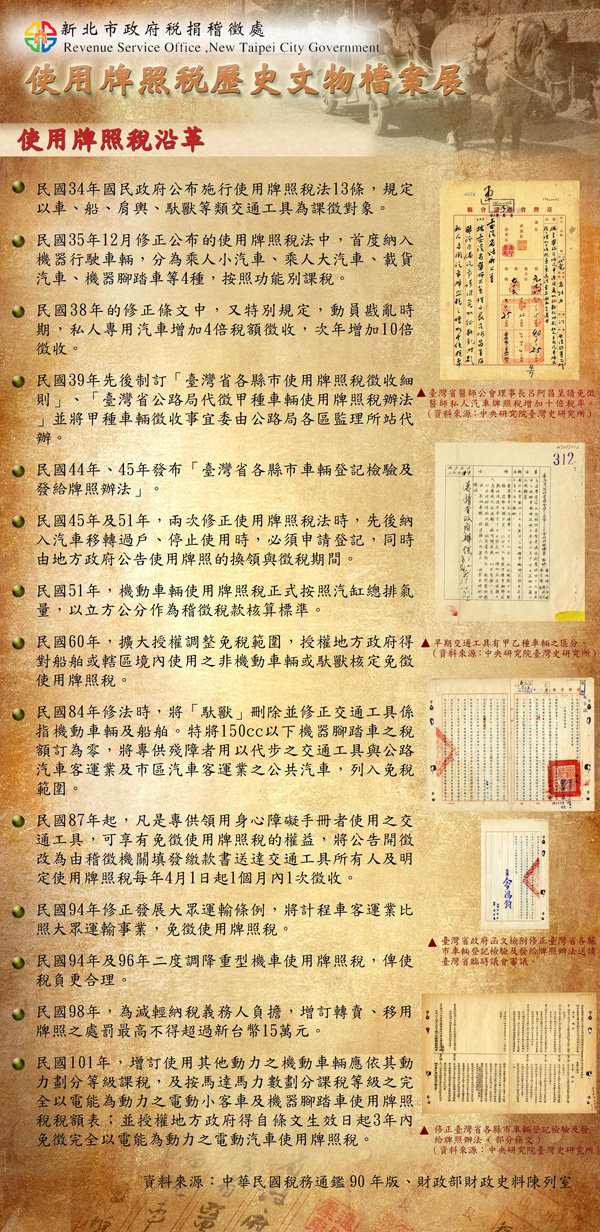 新北市政府稅捐稽徵處
Revenue Service Office ,New Taipei City Government
使用牌照稅歷史文物檔案展
使用牌照稅沿革
民國34年國民政府公布施行使用牌照稅法13條，規定
以車、船、肩輿、馱獸等類交通工具為課徵對象。
民國35年12月修正公布的使用牌照稅法中，首度納入
機器行駛車輛，分為乘人小汽車、乘人大汽車、載貨
汽車、機器腳踏車等4種，按照功能別課稅。
民國38年的修正條文中，又特別規定，動員戡亂時
期，私人專用汽車增加4倍稅額徵收，次年增加10倍
徵收。
民國39年先後制訂「臺灣省各縣市使用牌照稅徵收細
則」、「臺灣省公路局代徵甲種車輛使用牌照稅辦法
」並將甲種車輛徵收事宜委由公路局各區監理所站代
辦。
民國44年、45年發布「臺灣省各縣市車輛登記檢驗及
發給牌照辦法」。
民國45年及51年，兩次修正使用牌照稅法時，先後納
入汽車移轉過戶、停止使用時，必須申請登記，同時
由地方政府公告使用牌照的換領與徵稅期間。
民國51年，機動車輛使用牌照稅正式按照汽缸總排氣
量，以立方公分作為稽徵稅款核算標準。
民國60年，擴大授權調整免稅範圍，授權地方政府得
對船舶或轄區境內使用之非機動車輛或馱獸核定免徵
使用牌照稅。
民國84年修法時，將「馱獸」刪除並修正交通工具係
指機動車輛及船舶。特將150cc以下機器腳踏車之稅
額訂為零，將專供殘障者用以代步之交通工具與公路
汽車客運業及市區汽車客運業之公共汽車，列入免稅
範圍。
民國87年起，凡是專供領用身心障礙手冊者使用之交
通工具，可享有免徵使用牌照稅的權益，將公告開徵
改為由稽徵機關填發繳款書送達交通工具所有人及明
定使用牌照稅每年4月1日起1個月內1次徵收。
民國94年修正發展大眾運輸條例，將計程車客運業比
照大眾運輸事業，免徵使用牌照稅。
民國94年及96年二度調降重型機車使用牌照稅，俾使
稅負更合理。
民國98年，為減輕納稅義務人負擔，增訂轉賣、移用
牌照之處罰最高不得超過新台幣15萬元。
民國101年，增訂使用其他動力之機動車輛應依其動
力劃分等級課稅，及按馬達馬力數劃分課稅等級之完
全以電能為動力之電動小客車及機器腳踏車使用牌照
稅稅額表；並授權地方政府得自條文生效日起3年內
免徵完全以電能為動力之電動汽車使用牌照稅。
資料來源：中華民國稅務通鑑90年版、財政部財政史料陳列室
▲臺灣省醫師公會理事長呂阿昌呈請免徵
醫師私人汽車牌照稅增加十倍稅率。
（資料來源：中央研究院臺灣史研究所）
312
▲早期交通工具有甲乙種車輛之區分。
（資料來源：中央研究院臺灣史研究所）
▲臺灣省政府函文檢附修正臺灣省各縣
市車輛登記檢驗及發給牌照辦法送請
臺灣省臨時議會審議。
▲修正臺灣省各縣市車輛登記檢驗及發
給牌照辦法（部分條文）
（資料來源：中央研究院臺灣史研究所）